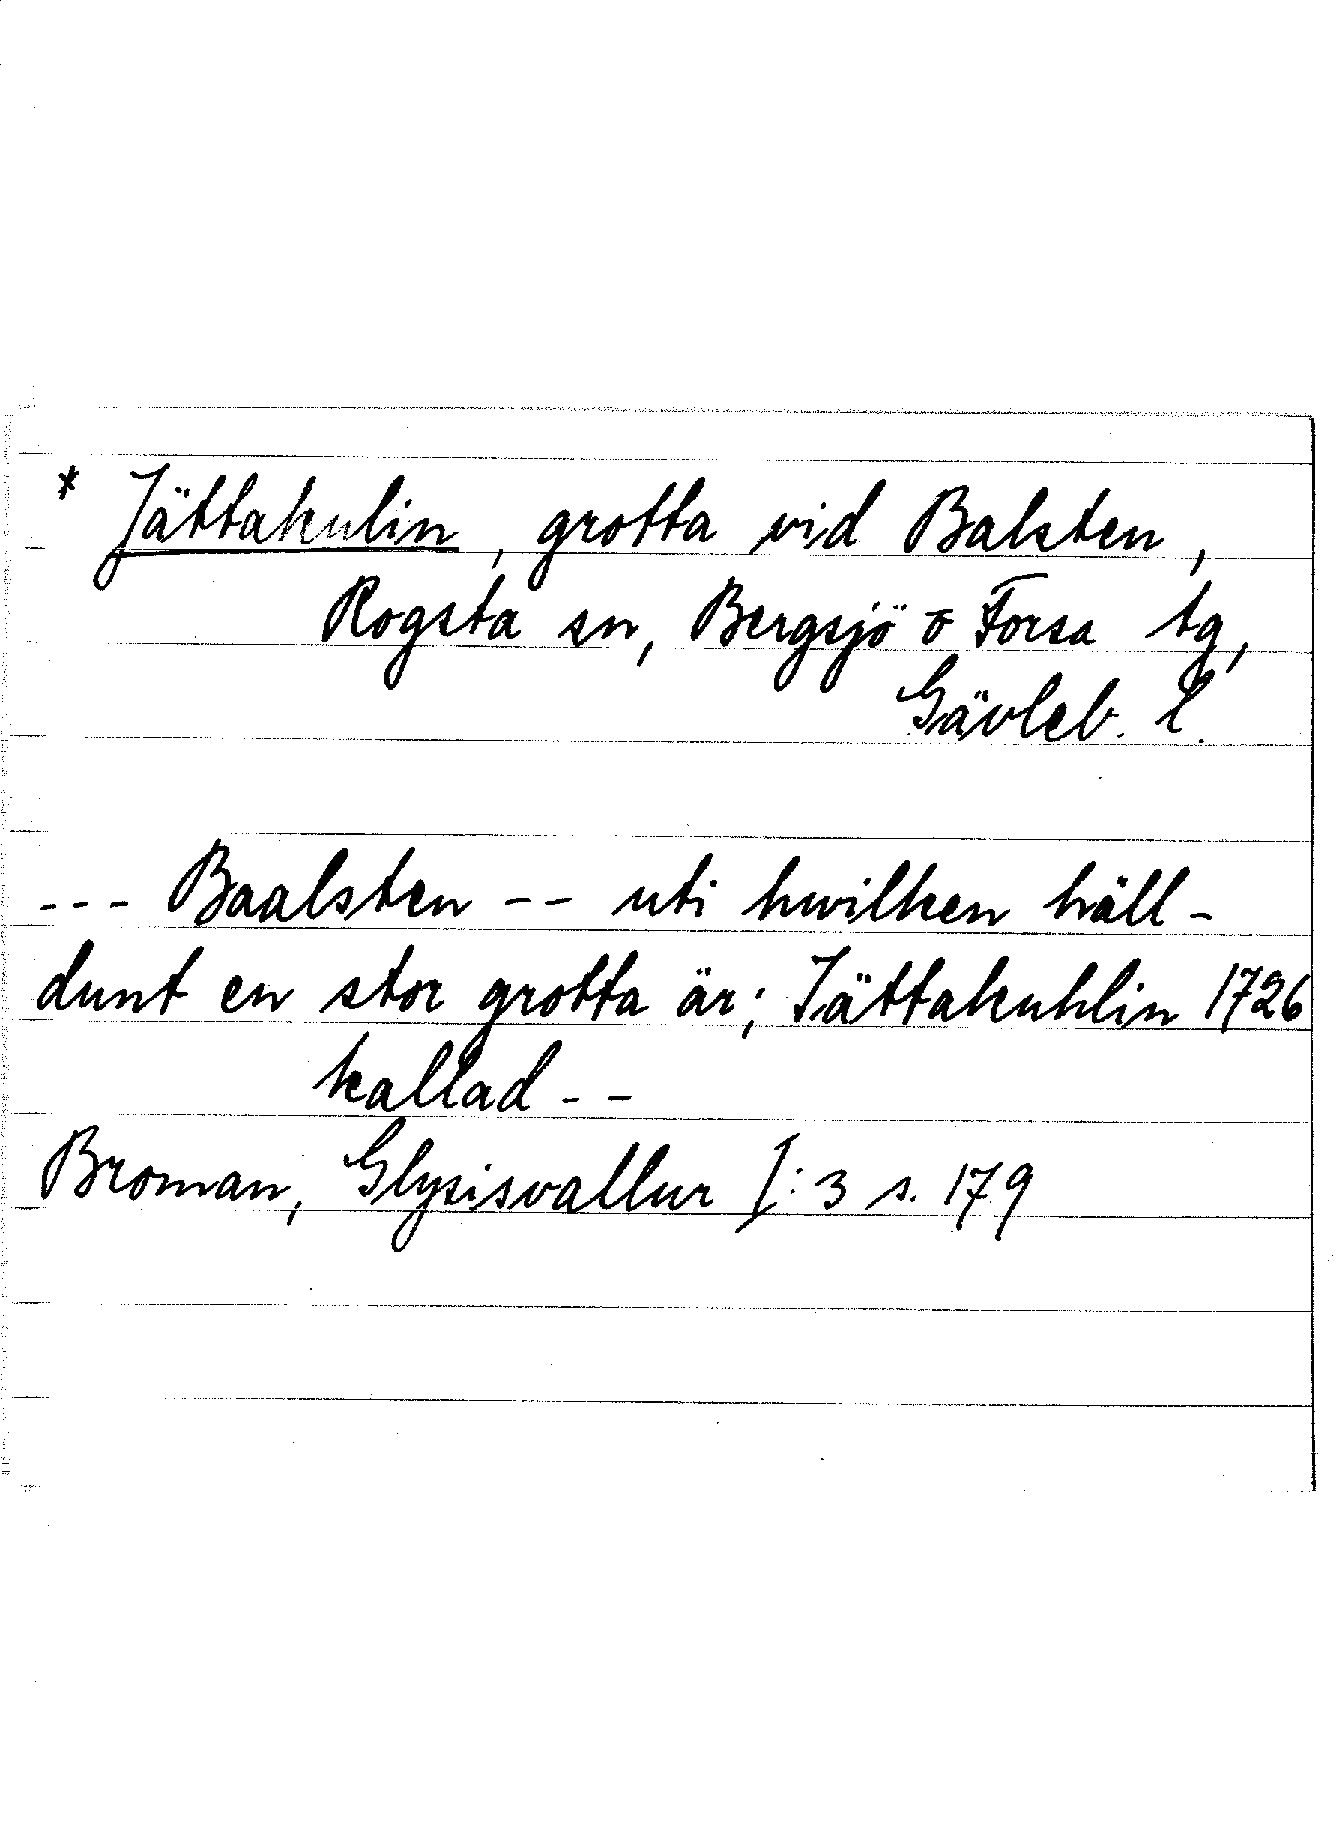 * Jättakulin, grotta vid Balsten,
Rogsta sn, Bergsjö o Forsa tg,
Gävleb. l.
--- Baalsten -- uti hwilken häll-
dunt en stor grotta är; Jättakuhlin 1726
kallad --
Broman, Glysisvallur I:3 s. 179